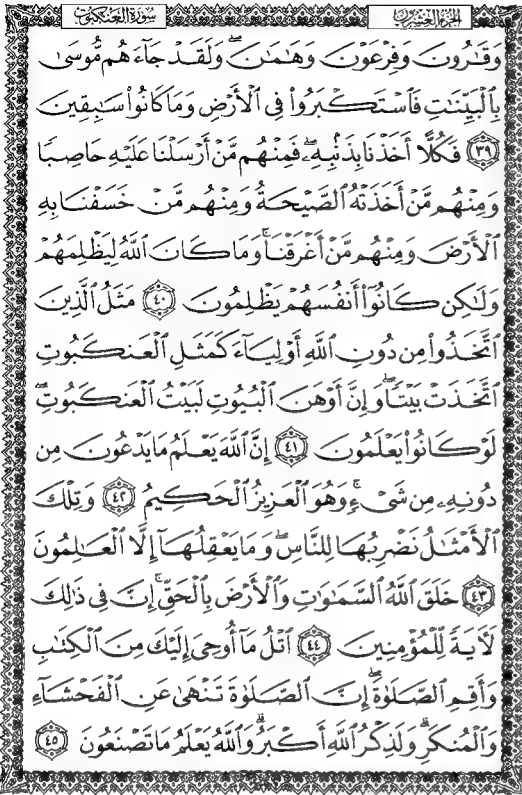 سورة العنكبوت
الجزء العشرون
وَقَٰرُونَ وَفِرْعَوْنَ وَهَٰمَٰنَ ۖ وَلَقَدْ جَآءَهُم مُّوسَىٰ
بِالْبَيِّنَٰتِ فَاسْتَكْبَرُوا۟ فِي الْأَرْضِ وَمَا كَانُوا۟ سَٰبِقِينَ
﴿٣٩﴾ فَكُلًّا أَخَذْنَا بِذَنۢبِهِۦ ۖ فَمِنْهُم مَّنْ أَرْسَلْنَا عَلَيْهِ حَاصِبًا
وَمِنْهُم مَّنْ أَخَذَتْهُ الصَّيْحَةُ وَمِنْهُم مَّنْ خَسَفْنَا بِهِ
الْأَرْضَ وَمِنْهُم مَّنْ أَغْرَقْنَا ۚ وَمَا كَانَ اللَّهُ لِيَظْلِمَهُمْ
وَلَٰكِن كَانُوٓا۟ أَنفُسَهُمْ يَظْلِمُونَ ﴿٤٠﴾ مَثَلُ الَّذِينَ
اتَّخَذُوا۟ مِن دُونِ اللَّهِ أَوْلِيَآءَ كَمَثَلِ الْعَنكَبُوتِ
اتَّخَذَتْ بَيْتًا ۖ وَإِنَّ أَوْهَنَ الْبُيُوتِ لَبَيْتُ الْعَنكَبُوتِ ۖ
لَوْ كَانُوا۟ يَعْلَمُونَ ﴿٤١﴾ إِنَّ اللَّهَ يَعْلَمُ مَا يَدْعُونَ مِن
دُونِهِۦ مِن شَىْءٍ ۚ وَهُوَ الْعَزِيزُ الْحَكِيمُ ﴿٤٢﴾ وَتِلْكَ
الْأَمْثَٰلُ نَضْرِبُهَا لِلنَّاسِ ۖ وَمَا يَعْقِلُهَآ إِلَّا الْعَٰلِمُونَ
﴿٤٣﴾ خَلَقَ اللَّهُ السَّمَٰوَٰتِ وَالْأَرْضَ بِالْحَقِّ ۚ إِنَّ فِي ذَٰلِكَ
لَءَايَةً لِّلْمُؤْمِنِينَ ﴿٤٤﴾ اتْلُ مَآ أُوحِىَ إِلَيْكَ مِنَ الْكِتَٰبِ
وَأَقِمِ الصَّلَوٰةَ ۖ إِنَّ الصَّلَوٰةَ تَنْهَىٰ عَنِ الْفَحْشَآءِ
وَالْمُنكَرِ ۗ وَلَذِكْرُ اللَّهِ أَكْبَرُ ۗ وَاللَّهُ يَعْلَمُ مَا تَصْنَعُونَ ﴿٤٥﴾